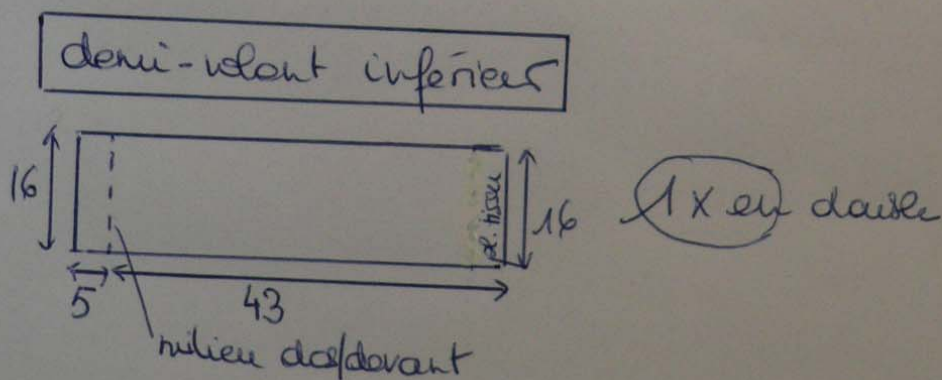 demi-volant inférieur
16
pl. tissu
16
1x en double
5
43
milieu dos/devant